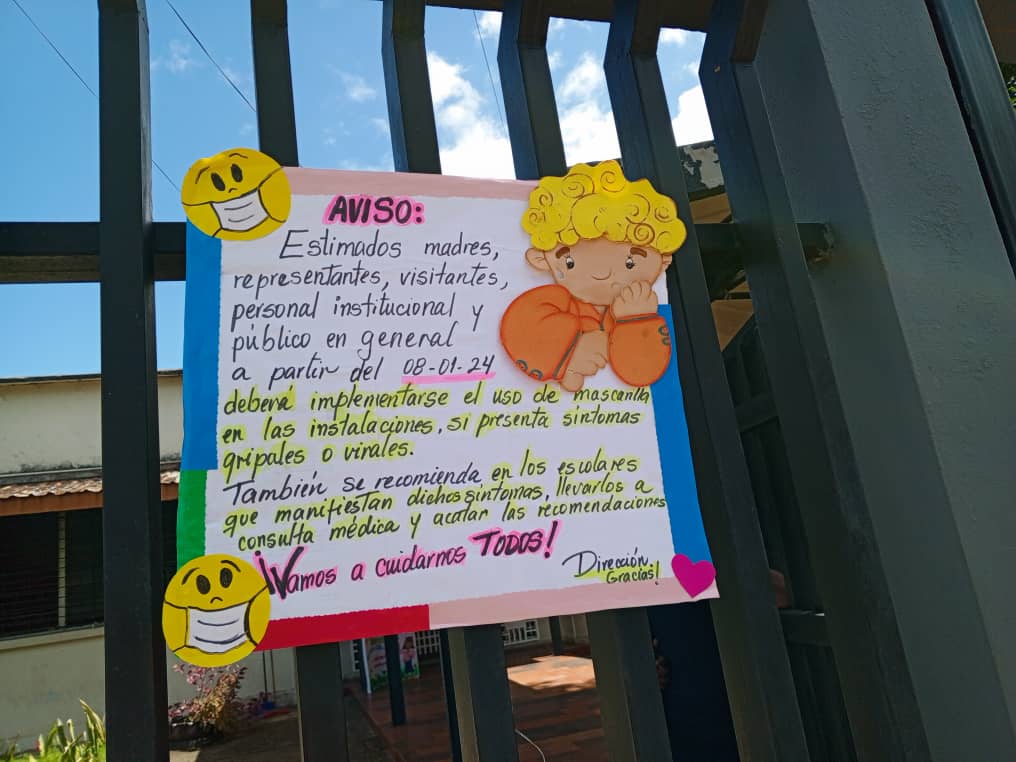 AVISO:
Estimados madres,
representantes, visitantes,
personal institucional y
público en general
a partir del 08-01-24
deberá implementarse el uso de mascarilla
en las instalaciones, si presenta síntomas
gripales o virales.
También se recomienda en los escolares
que manifiestan dichos síntomas, llevarlos a
consulta médica y acatar las recomendaciones
¡Vamos a cuidarnos TODOS!
Dirección
Gracias!